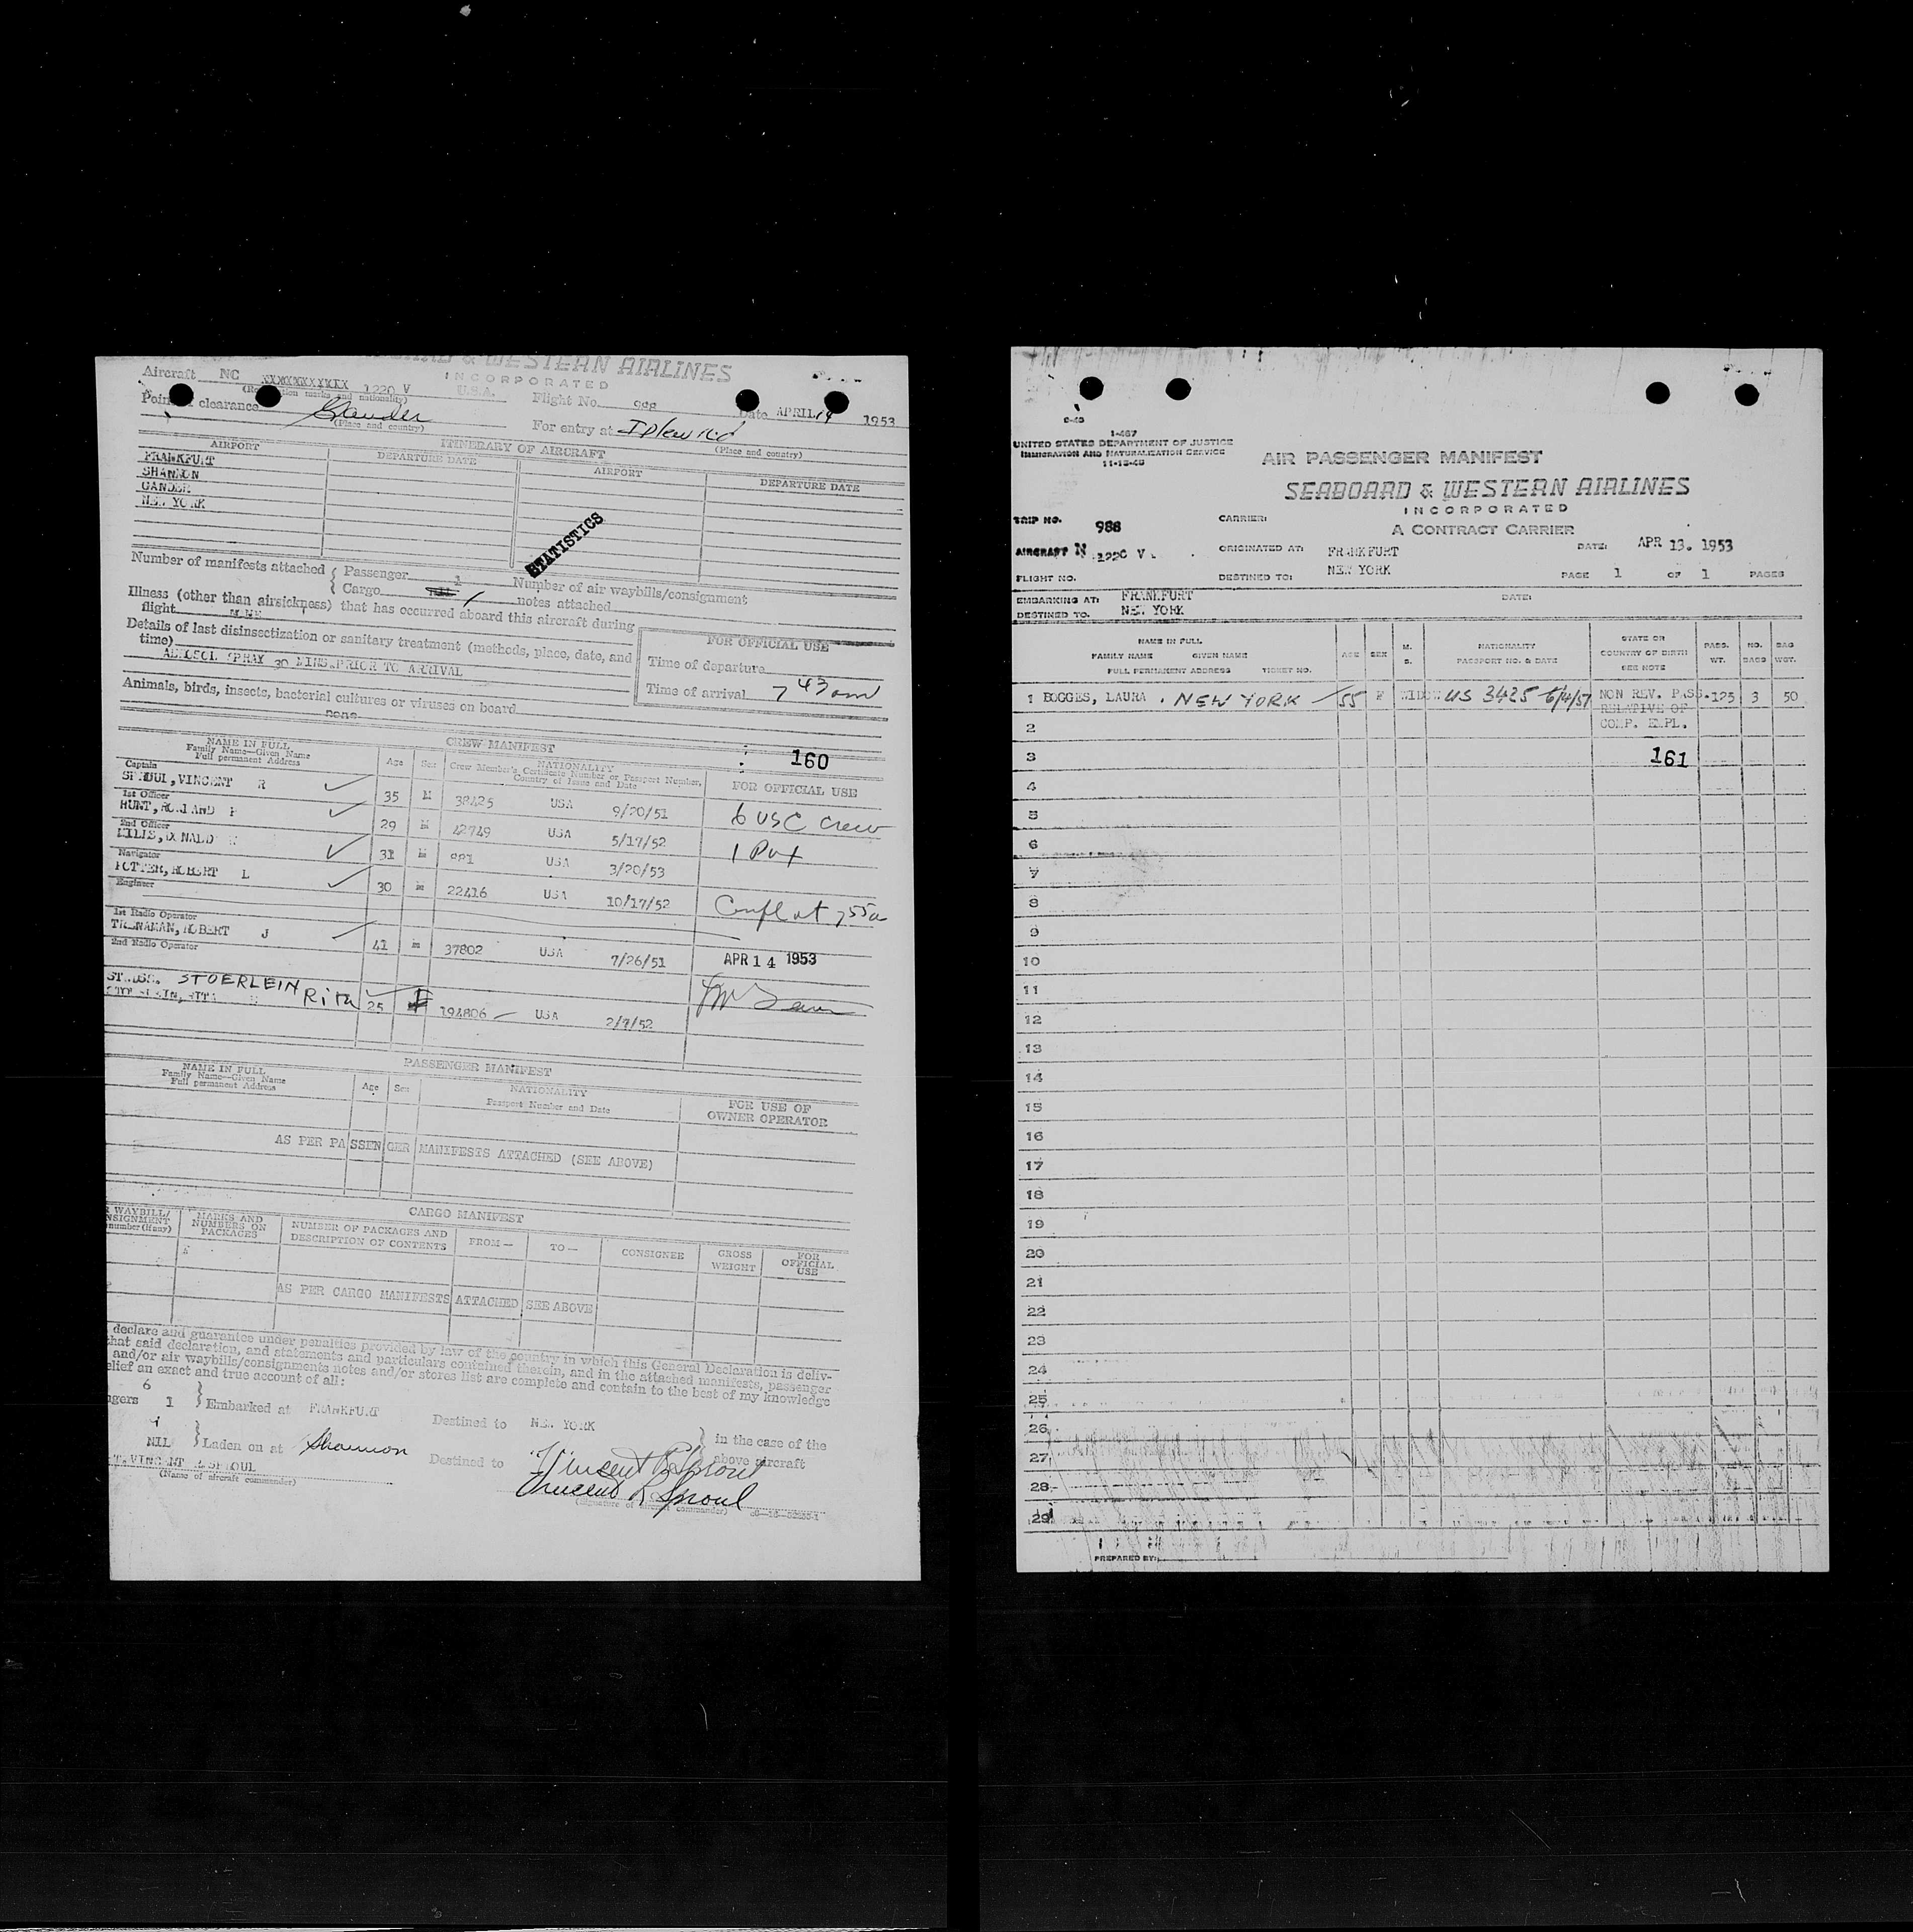 & WESTERN AIRLINES
INCORPORATED
Aircraft NC 1220 V U.S.A. Flight No. 988 Date APRIL 14 1953
(Registration marks and nationality)
Point of clearance Gander For entry at Idlewild
(Place and country) (Place and country)
ITINERARY OF AIRCRAFT
AIRPORT DEPARTURE DATE AIRPORT DEPARTURE DATE
FRANKFURT
SHANNON
GANDER
NEW YORK
STATISTICS
Number of manifests attached { Passenger 1 Number of air waybills/consignment
Cargo 1 notes attached
Illness (other than airsickness) that has occurred aboard this aircraft during
flight
Details of last disinsectization or sanitary treatment (methods, place, date, and
time)
AEROSOL SPRAY 30 MINS.PRIOR TO ARRIVAL
FOR OFFICIAL USE
Time of departure
Time of arrival 7 43 am
Animals, birds, insects, bacterial cultures or viruses on board
none
CREW MANIFEST 160
NAME IN FULL
Family Name—Given Name
Full permanent Address
Age Sex
NATIONALITY
Crew Member's Certificate Number or Passport Number,
Country of Issue and Date
FOR OFFICIAL USE
Captain
SPROUL,VINCENT R 35 M 38425 USA 9/20/51 6 USC Crew
1st Officer
HUNT,ROWLAND P 29 m 42749 USA 5/17/52 1 Pax
2nd Officer
DONALD 31 m 881 USA 3/20/53
Navigator
POTTER,ROBERT L 30 m 22416 USA 10/17/52 Compl at 7 55a
Engineer
1st Radio Operator
TRENAMAN,ROBERT J 41 m 37802 USA 7/26/51 APR 14 1953
2nd Radio Operator
STOERLEIN Rita 25 F 194806 USA 2/7/52
PASSENGER MANIFEST
NAME IN FULL
Family Name—Given Name
Full permanent Address
Age Sex
NATIONALITY
Passport Number and Date
FOR USE OF
OWNER OPERATOR
AS PER PASSENGER MANIFESTS ATTACHED (SEE ABOVE)
CARGO MANIFEST
R WAYBILL/
NSIGNMENT
number (if any)
MARKS AND
NUMBERS ON
PACKAGES
NUMBER OF PACKAGES AND
DESCRIPTION OF CONTENTS
FROM — TO — CONSIGNEE
GROSS
WEIGHT
FOR
OFFICIAL
USE
AS PER CARGO MANIFESTS ATTACHED SEE ABOVE
declare and guarantee under penalties provided by law of the country in which this General Declaration is deliv-
that said declaration, and statements and particulars contained therein, and in the attached manifests, passenger
and/or air waybills/consignments notes and/or stores list are complete and contain to the best of my knowledge
elief an exact and true account of all:
6
ngers 1 } Embarked at FRANKFURT Destined to NEW YORK
NIL } Laden on at Shannon Destined to } in the case of the
above aircraft
VINCENT R SPROUL
(Name of aircraft commander)
Vincent R Sproul
Vincent R Sproul
(Signature of aircraft commander)
1-467
UNITED STATES DEPARTMENT OF JUSTICE
IMMIGRATION AND NATURALIZATION SERVICE
11-15-48
AIR PASSENGER MANIFEST
SEABOARD & WESTERN AIRLINES
INCORPORATED
A CONTRACT CARRIER
TRIP NO. 988 CARRIER:
AIRCRAFT N 1220 V ORIGINATED AT: FRANKFURT DATE: APR 13. 1953
FLIGHT NO. DESTINED TO: NEW YORK PAGE 1 OF 1 PAGES
EMBARKING AT: FRANKFURT DATE:
DESTINED TO. NEW YORK
NAME IN FULL
FAMILY NAME GIVEN NAME
FULL PERMANENT ADDRESS TICKET NO.
AGE SEX M. S.
NATIONALITY
PASSPORT NO. & DATE
STATE OR
COUNTRY OF BIRTH
SEE NOTE
PASS. WT. NO. BAGS BAG WGT.
1 BOGGES, LAURA . NEW YORK 55 F WIDOW US 3425 6/4/51 NON REV. PASS. 125 3 50
2 RELATIVE OF
COMP. EMPL.
3 161
4
5
6
7
8
9
10
11
12
13
14
15
16
17
18
19
20
21
22
23
24
25
26
27
28
29
PREPARED BY: